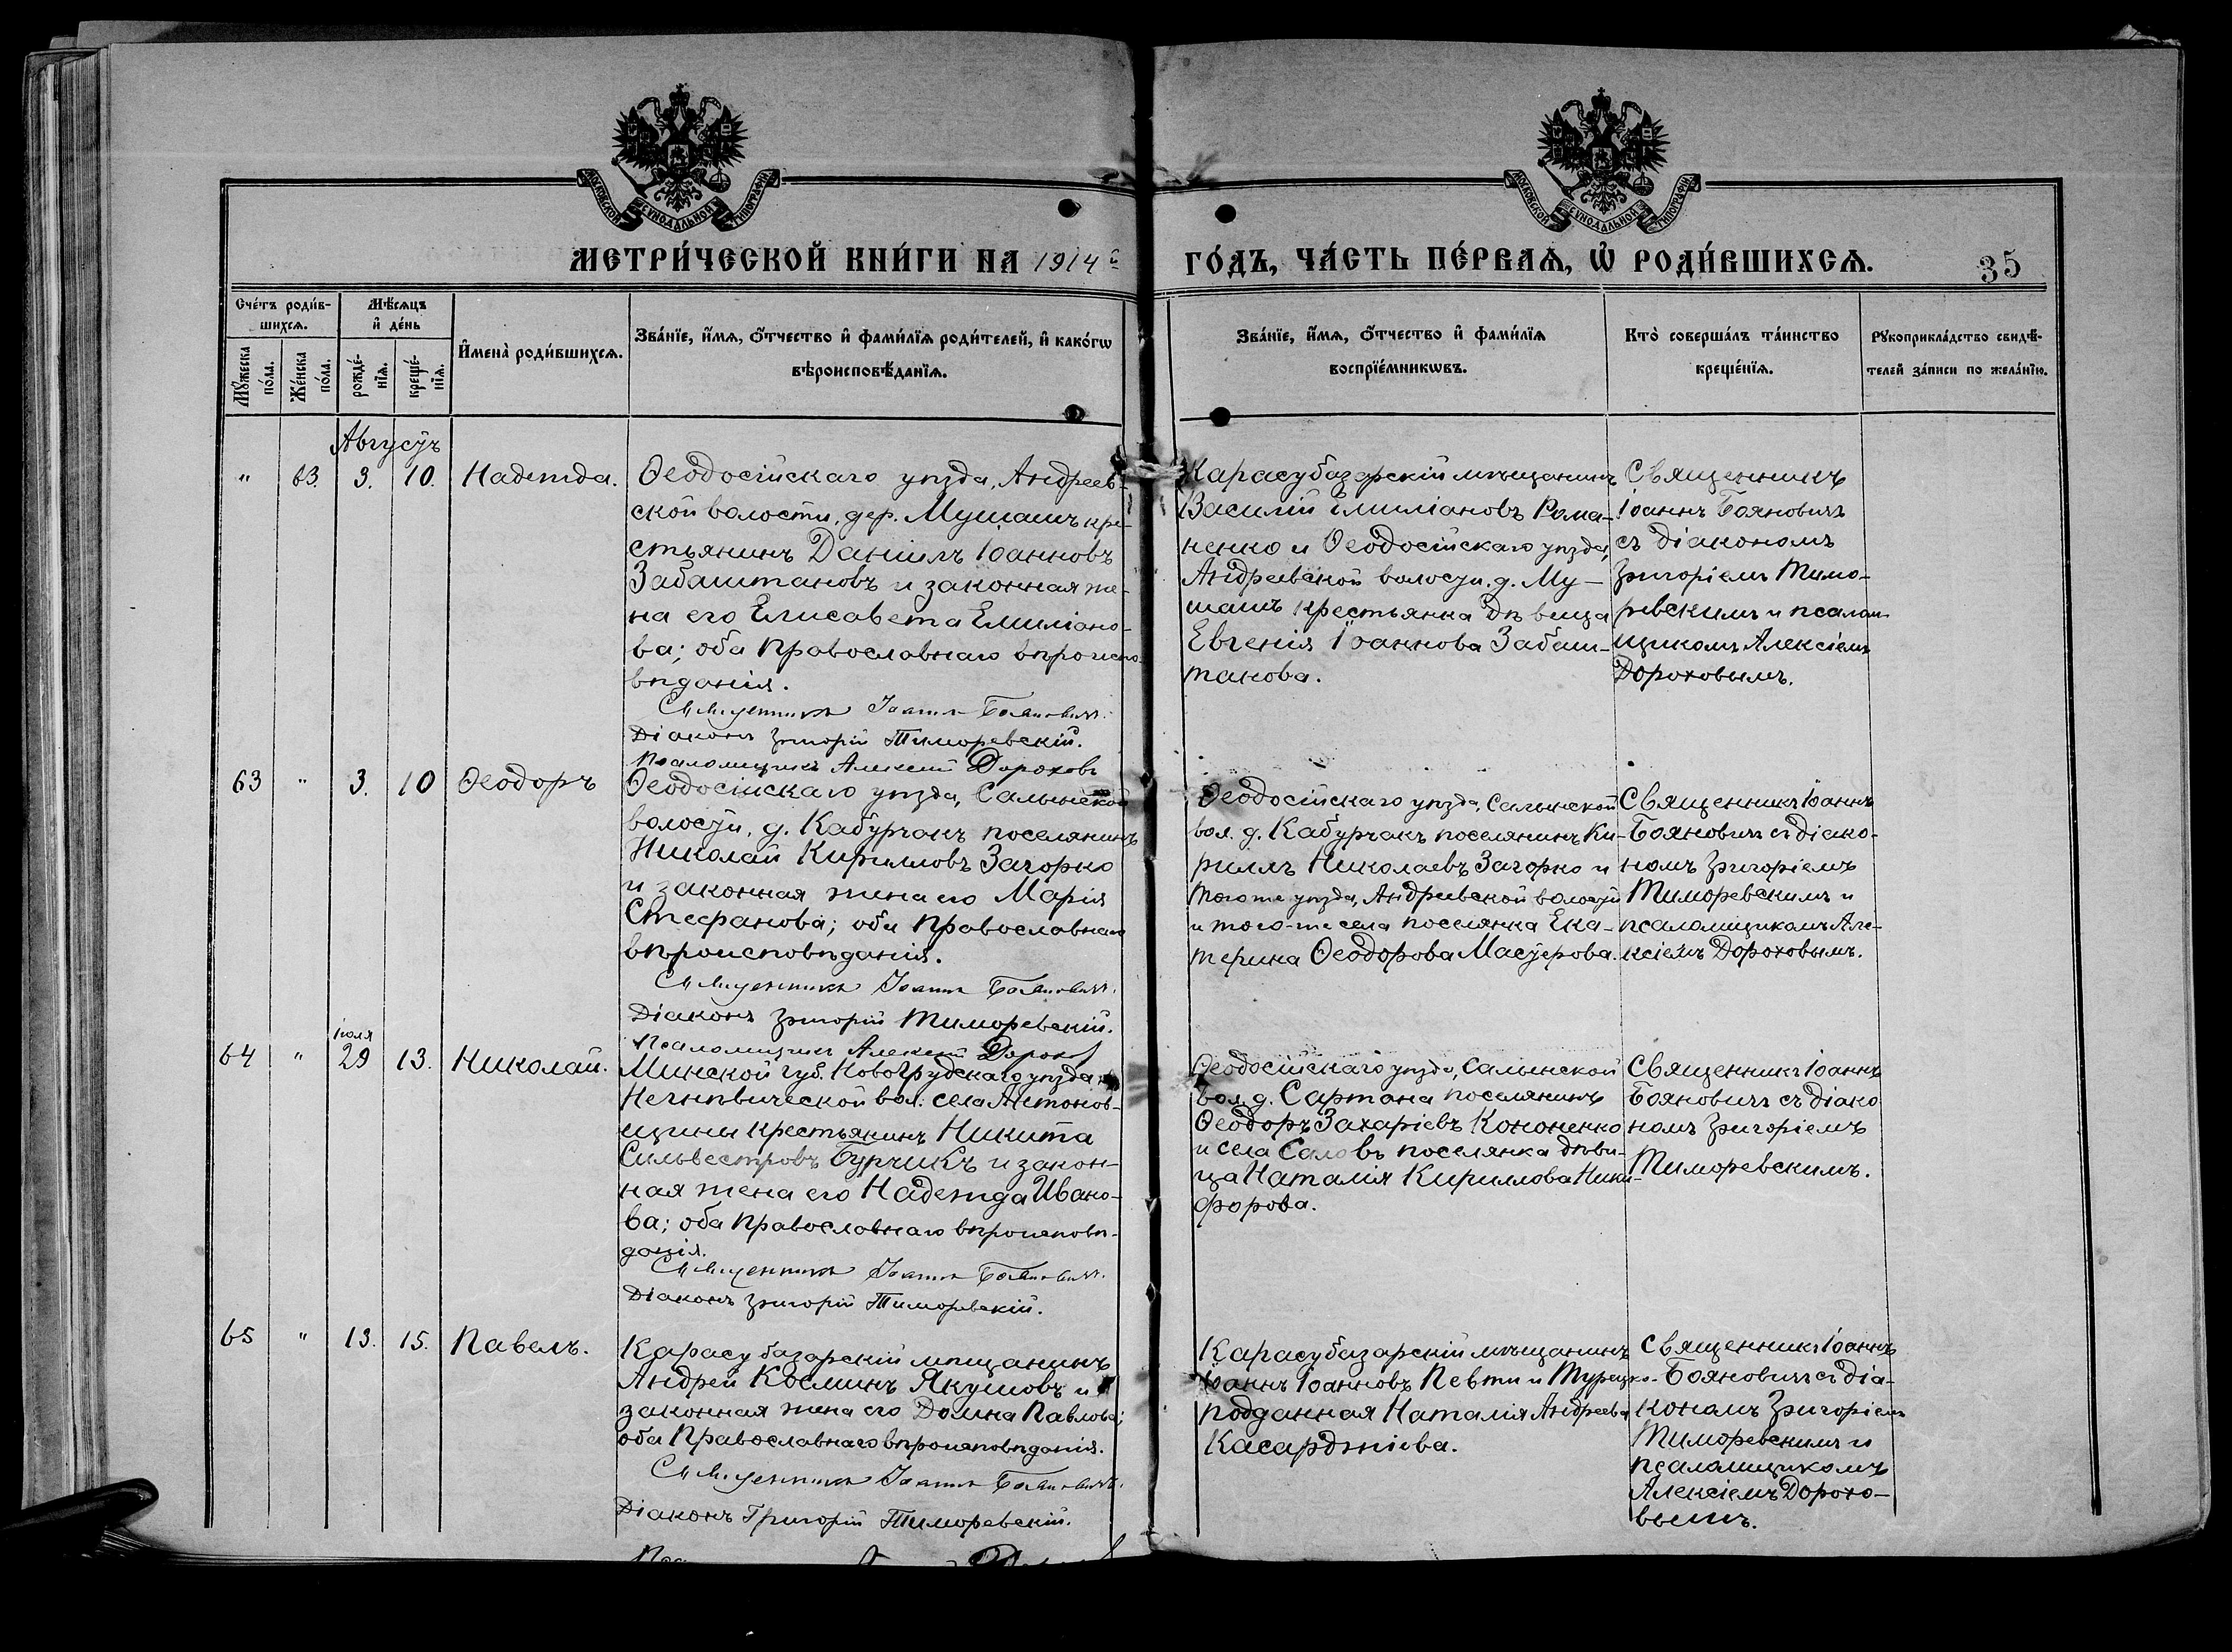 МОСКОВСКОЙ СѴНОДАЛЬНОЙ ТИПОГРАФІИ
МОСКОВСКОЙ СѴНОДАЛЬНОЙ ТИПОГРАФІИ
МЕТРИ́ЧЕСКОЙ КНИ́ГИ НА 1914й ГО́ДЪ, ЧА́СТЬ ПЕ́РВАѦ, Ѡ҆ РОДИ́ВШИХСѦ.
35
Сче́тъ роди́в-
шихсѧ.
Мꙋ́жеска по́ла.
Же́нска по́ла.
Мѣ́сѧцъ
и҆ де́нь
рожде́-
нїѧ.
креще́-
нїѧ.
И҆мена̀ роди́вшихсѧ.
Зва́нїе, и҆́мѧ, ѻ҆́тчество и҆ фами́лїѧ роди́телей, и҆ како́гѡ
вѣроисповѣ́данїѧ.
Зва́нїе, и҆́мѧ, ѻ҆́тчество и҆ фами́лїѧ
воспрїе́мникѡвъ.
Кто̀ соверша́лъ та́инство
креще́нїѧ.
Рꙋкоприкла́дство свидѣ́-
телей за́писи по жела́нїю.
Августъ
" 63. 3. 10. Надежда.
Ѳеодосійскаго уѣзда, Андреев-
ской волости, дер. Мушашъ кре-
стьянинъ Даніилъ Іоанновъ
Забаштановъ и законная же-
на его Елисавета Емиліано-
ва; оба Православнаго вѣроиспо-
вѣданія.
Священникъ Іоаннъ Бояновичъ.
Діаконъ Григорій Тиморевскій.
Псаломщикъ Алексій Дороховъ
Карасубазарскій мѣщанинъ
Василій Емиліановъ Рома-
ненко и Ѳеодосійскаго уѣзда,
Андреевской волости, д. Му-
шашъ крестьянка дѣвица
Евгенія Іоаннова Забаш-
танова.
Священникъ
Іоаннъ Бояновичъ
съ діакономъ
Григоріемъ Тимо-
ревскимъ и псалом-
щикомъ Алексіемъ
Дороховымъ.
63 " 3. 10 Ѳеодоръ
Ѳеодосійскаго уѣзда, Салынской
волости, д. Кабурчакъ поселянинъ
Николай Кирилловъ Загорко
и законная жена его Марія
Стефанова; оба Православнаго
вѣроисповѣданія.
Священникъ Іоаннъ Бояновичъ.
Діаконъ Григорій Тиморевскій.
Псаломщикъ Алексій Дорохов
Ѳеодосійскаго уѣзда, Салынской
вол. д. Кабурчакъ поселянинъ Ки-
риллъ Николаевъ Загорко и
того же уѣзда, Андреевской волости
и того-же села поселянка Ека-
терина Ѳеодорова Мастерова.
Священникъ Іоаннъ
Бояновичъ съ діако-
номъ Григоріемъ
Тиморевскимъ и
псаломщикомъ Але-
ксіемъ Дороховымъ.
іюля
64 " 29 13. Николай.
Минской губ. Новогрудскаго уѣзда,
Негнѣвической вол. села Антонов-
щины крестьянинъ Никита
Сильвестровъ Бурчикъ и закон-
ная жена его Надежда Ивано-
ва; оба Православнаго вѣроисповѣ-
данія.
Священникъ Іоаннъ Бояновичъ.
Діаконъ Григорій Тиморевскій.
Ѳеодосійскаго уѣзда, Салынской
вол. д. Сартана поселянинъ
Ѳеодоръ Захаріевъ Кононенко
и села Саловъ поселянка дѣви-
ца Наталія Кириллова Ники-
форова.
Священникъ Іоаннъ
Бояновичъ съ діако
номъ Григоріемъ
Тиморевскимъ.
65 " 13. 15. Павелъ.
Карасубазарскій мѣщанинъ
Андрей Косминъ Якушовъ и
законная жена его Домна Павлова;
оба Православнаго вѣроисповѣданія.
Священникъ Іоаннъ Бояновичъ.
Діаконъ Григорій Тиморевскій.
Карасубазарскій мѣщанинъ
Іоаннъ Іоанновъ Певти и Турецко-
подданная Наталія Андреева
Касарджіева.
Священникъ Іоаннъ
Бояновичъ съ діа-
кономъ Григоріемъ
Тиморевскимъ и
псаломщикомъ
Алексіемъ Дорохо-
вымъ.